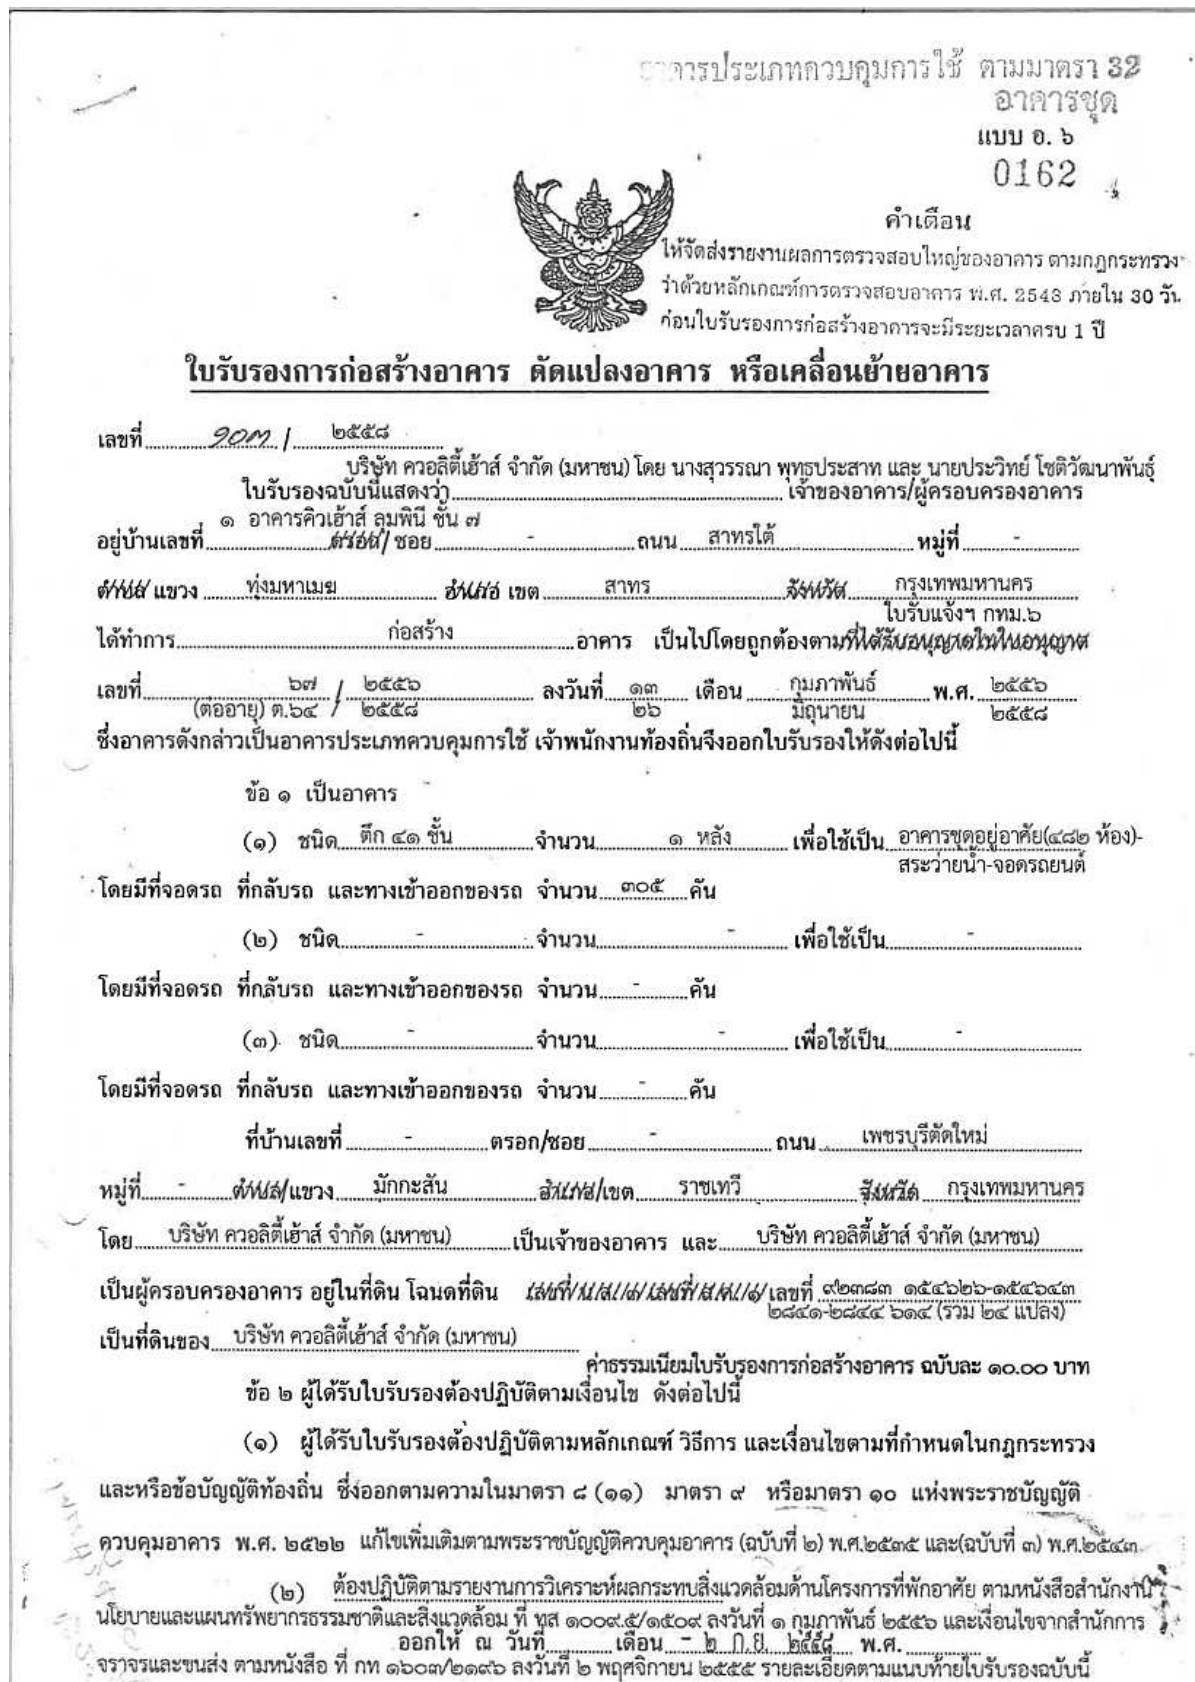 อาคารประเภทควบคุมการใช้ ตามมาตรา 32
อาคารชุด
แบบ อ. ๖
0162
คำเตือน
ให้จัดส่งรายงานผลการตรวจสอบใหญ่ของอาคาร ตามกฎกระทรวง
ว่าด้วยหลักเกณฑ์การตรวจสอบอาคาร พ.ศ. 2548 ภายใน 30 วัน
ก่อนใบรับรองการก่อสร้างอาคารจะมีระยะเวลาครบ 1 ปี
ใบรับรองการก่อสร้างอาคาร ดัดแปลงอาคาร หรือเคลื่อนย้ายอาคาร
เลขที่ ๑๐๓ / ๒๕๕๘
บริษัท ควอลิตี้เฮ้าส์ จำกัด (มหาชน) โดย นางสุวรรณา พุทธประสาท และ นายประวิทย์ โชติวัฒนาพันธุ์
ใบรับรองฉบับนี้แสดงว่า เจ้าของอาคาร/ผู้ครอบครองอาคาร
๑ อาคารคิวเฮ้าส์ ลุมพินี ชั้น ๗
อยู่บ้านเลขที่ ตรอก/ซอย - ถนน สาทรใต้ หมู่ที่ -
ตำบล/แขวง ทุ่งมหาเมฆ อำเภอ เขต สาทร จังหวัด กรุงเทพมหานคร
ใบรับแจ้งฯ กทม.๖
ได้ทำการ ก่อสร้าง อาคาร เป็นไปโดยถูกต้องตามที่ได้รับอนุญาตในใบอนุญาต
เลขที่ ๖๗ / ๒๕๕๖ ลงวันที่ ๑๓ เดือน กุมภาพันธ์ พ.ศ. ๒๕๕๖
(ต่ออายุ) ต.๖๔ / ๒๕๕๘ ๒๖ มิถุนายน ๒๕๕๘
ซึ่งอาคารดังกล่าวเป็นอาคารประเภทควบคุมการใช้ เจ้าพนักงานท้องถิ่นจึงออกใบรับรองให้ดังต่อไปนี้
ข้อ ๑ เป็นอาคาร
(๑) ชนิด ตึก ๔๑ ชั้น จำนวน ๑ หลัง เพื่อใช้เป็น อาคารชุดอยู่อาศัย(๔๘๒ ห้อง)-
สระว่ายน้ำ-จอดรถยนต์
โดยมีที่จอดรถ ที่กลับรถ และทางเข้าออกของรถ จำนวน ๓๐๕ คัน
(๒) ชนิด - จำนวน - เพื่อใช้เป็น -
โดยมีที่จอดรถ ที่กลับรถ และทางเข้าออกของรถ จำนวน - คัน
(๓) ชนิด - จำนวน - เพื่อใช้เป็น -
โดยมีที่จอดรถ ที่กลับรถ และทางเข้าออกของรถ จำนวน - คัน
ที่บ้านเลขที่ - ตรอก/ซอย - ถนน เพชรบุรีตัดใหม่
หมู่ที่ - ตำบล/แขวง มักกะสัน อำเภอ/เขต ราชเทวี จังหวัด กรุงเทพมหานคร
โดย บริษัท ควอลิตี้เฮ้าส์ จำกัด (มหาชน) เป็นเจ้าของอาคาร และ บริษัท ควอลิตี้เฮ้าส์ จำกัด (มหาชน)
เป็นผู้ครอบครองอาคาร อยู่ในที่ดิน โฉนดที่ดิน เลขที่ ๙๒๓๘๓ ๑๕๔๖๒๖-๑๕๔๖๔๓
๒๘๔๑-๒๘๔๔ ๖๑๔ (รวม ๒๔ แปลง)
เป็นที่ดินของ บริษัท ควอลิตี้เฮ้าส์ จำกัด (มหาชน)
ค่าธรรมเนียมใบรับรองการก่อสร้างอาคาร ฉบับละ ๑๐.๐๐ บาท
ข้อ ๒ ผู้ได้รับใบรับรองต้องปฏิบัติตามเงื่อนไข ดังต่อไปนี้
(๑) ผู้ได้รับใบรับรองต้องปฏิบัติตามหลักเกณฑ์ วิธีการ และเงื่อนไขตามที่กำหนดในกฎกระทรวง
และหรือข้อบัญญัติท้องถิ่น ซึ่งออกตามความในมาตรา ๘ (๑๑) มาตรา ๙ หรือมาตรา ๑๐ แห่งพระราชบัญญัติ
ควบคุมอาคาร พ.ศ. ๒๕๒๒ แก้ไขเพิ่มเติมตามพระราชบัญญัติควบคุมอาคาร (ฉบับที่ ๒) พ.ศ.๒๕๓๕ และ(ฉบับที่ ๓) พ.ศ.๒๕๔๓
(๒) ต้องปฏิบัติตามรายงานการวิเคราะห์ผลกระทบสิ่งแวดล้อมด้านโครงการที่พักอาศัย ตามหนังสือสำนักงาน
นโยบายและแผนทรัพยากรธรรมชาติและสิ่งแวดล้อม ที่ ทส ๑๐๐๙.๕/๑๕๐๙ ลงวันที่ ๑ กุมภาพันธ์ ๒๕๕๖ และเงื่อนไขจากสำนักการ
ออกให้ ณ วันที่ เดือน - ๒ ก.ย. ๒๕๕๘ พ.ศ.
จราจรและขนส่ง ตามหนังสือ ที่ กท ๑๖๐๓/๒๑๙๖ ลงวันที่ ๒ พฤศจิกายน ๒๕๕๕ รายละเอียดตามแนบท้ายใบรับรองฉบับนี้